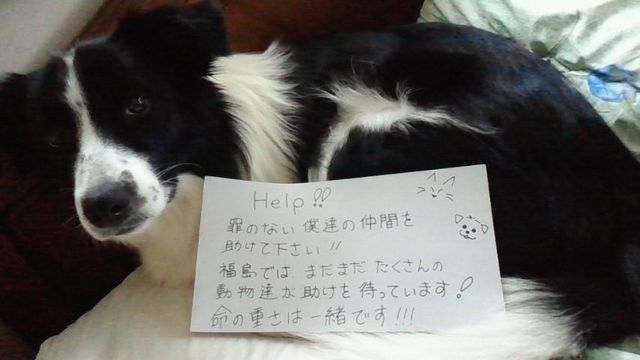 Help!!
罪のない僕達の仲間を
助けて下さい!!
福島では まだまだ たくさんの
動物達が助けを待っています!
命の重さは一緒です!!!